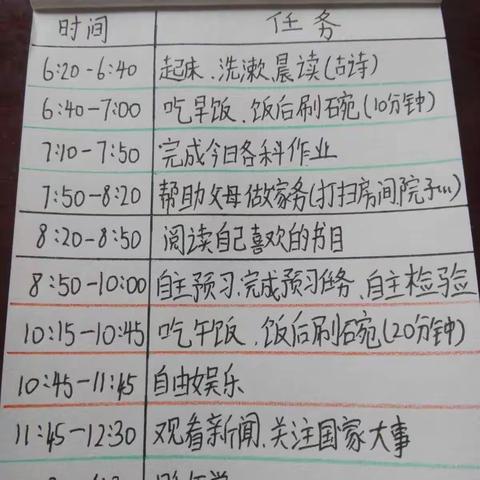 时间 任务
6:20-6:40 起床、洗漱、晨读(古诗)
6:40-7:00 吃早饭、饭后刷碗(10分钟)
7:10-7:50 完成今日各科作业
7:50-8:20 帮助父母做家务(打扫房间院子…)
8:20-8:50 阅读自己喜欢的书目
8:50-10:00 自主预习、完成预习任务、自主检验
10:15-10:45 吃午饭、饭后刷碗(20分钟)
10:45-11:45 自由娱乐
11:45-12:30 观看新闻、关注国家大事